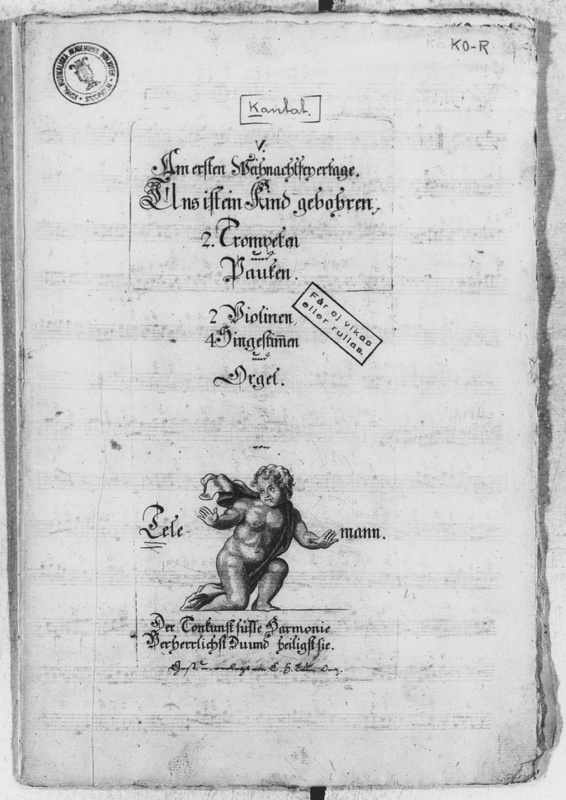 KO-R
Kantat.
V.
Am ersten Weihnachtfeyertage.
Uns ist ein Kind gebohren,
2. Trompeten
und
Pauken.
2 Violinen,
4 Singestim̄en
und
Orgel.
Får ej vikas
eller rullas.
von
Tele mann.
Der Tonkunst süsse Harmonie
Verherrlichst Du und heiligst sie.